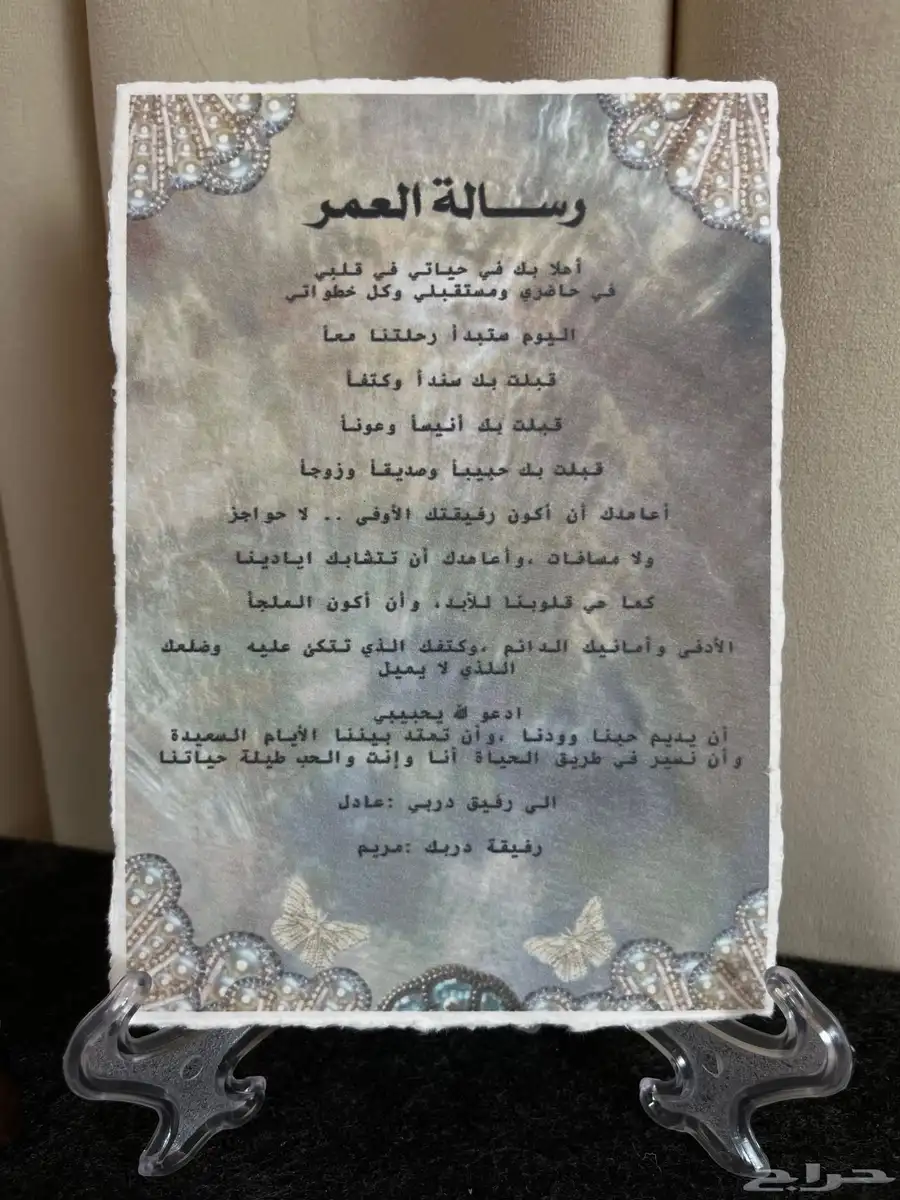 رســالة العمر
أهلا بك في حياتي في قلبي
في حاضري ومستقبلي وكل خطواتي
اليوم ستبدأ رحلتنا معاً
قبلت بك سنداً وكتفاً
قبلت بك أنيساً وعوناً
قبلت بك حبيباً وصديقاً وزوجاً
أعاهدك أن أكون رفيقتك الأوفى .. لا حواجز
ولا مسافات ،وأعاهدك أن تتشابك ايادينا
كما هي قلوبنا للأبد، وأن أكون الملجأ
الأدفى وأمانيك الدائم ،وكتفك الذي تتكئ عليه وضلعك
اللذي لا يميل
ادعو لله يحبيبي
أن يديم حبنا وودنا ،وأن تمتد بيننا الأيام السعيدة
وأن نسير في طريق الحياة أنا وإنت والحب طيلة حياتنا
الى رفيق دربي :عادل
رفيقة دربك :مريم
حراج